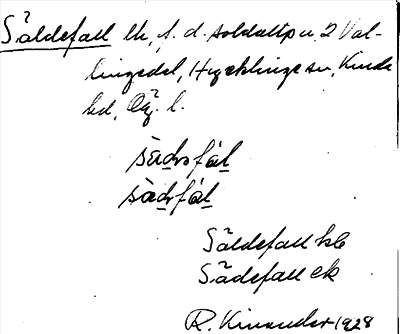 Säldefall lh, f. d. soldattp u. 2 Val-
lingedel, Hycklinge sn, Kinda
hd, Ög. l.
sädsfäl
sädsfäl
Säldefall hb
Sädefall ek
R. Kinander 1928